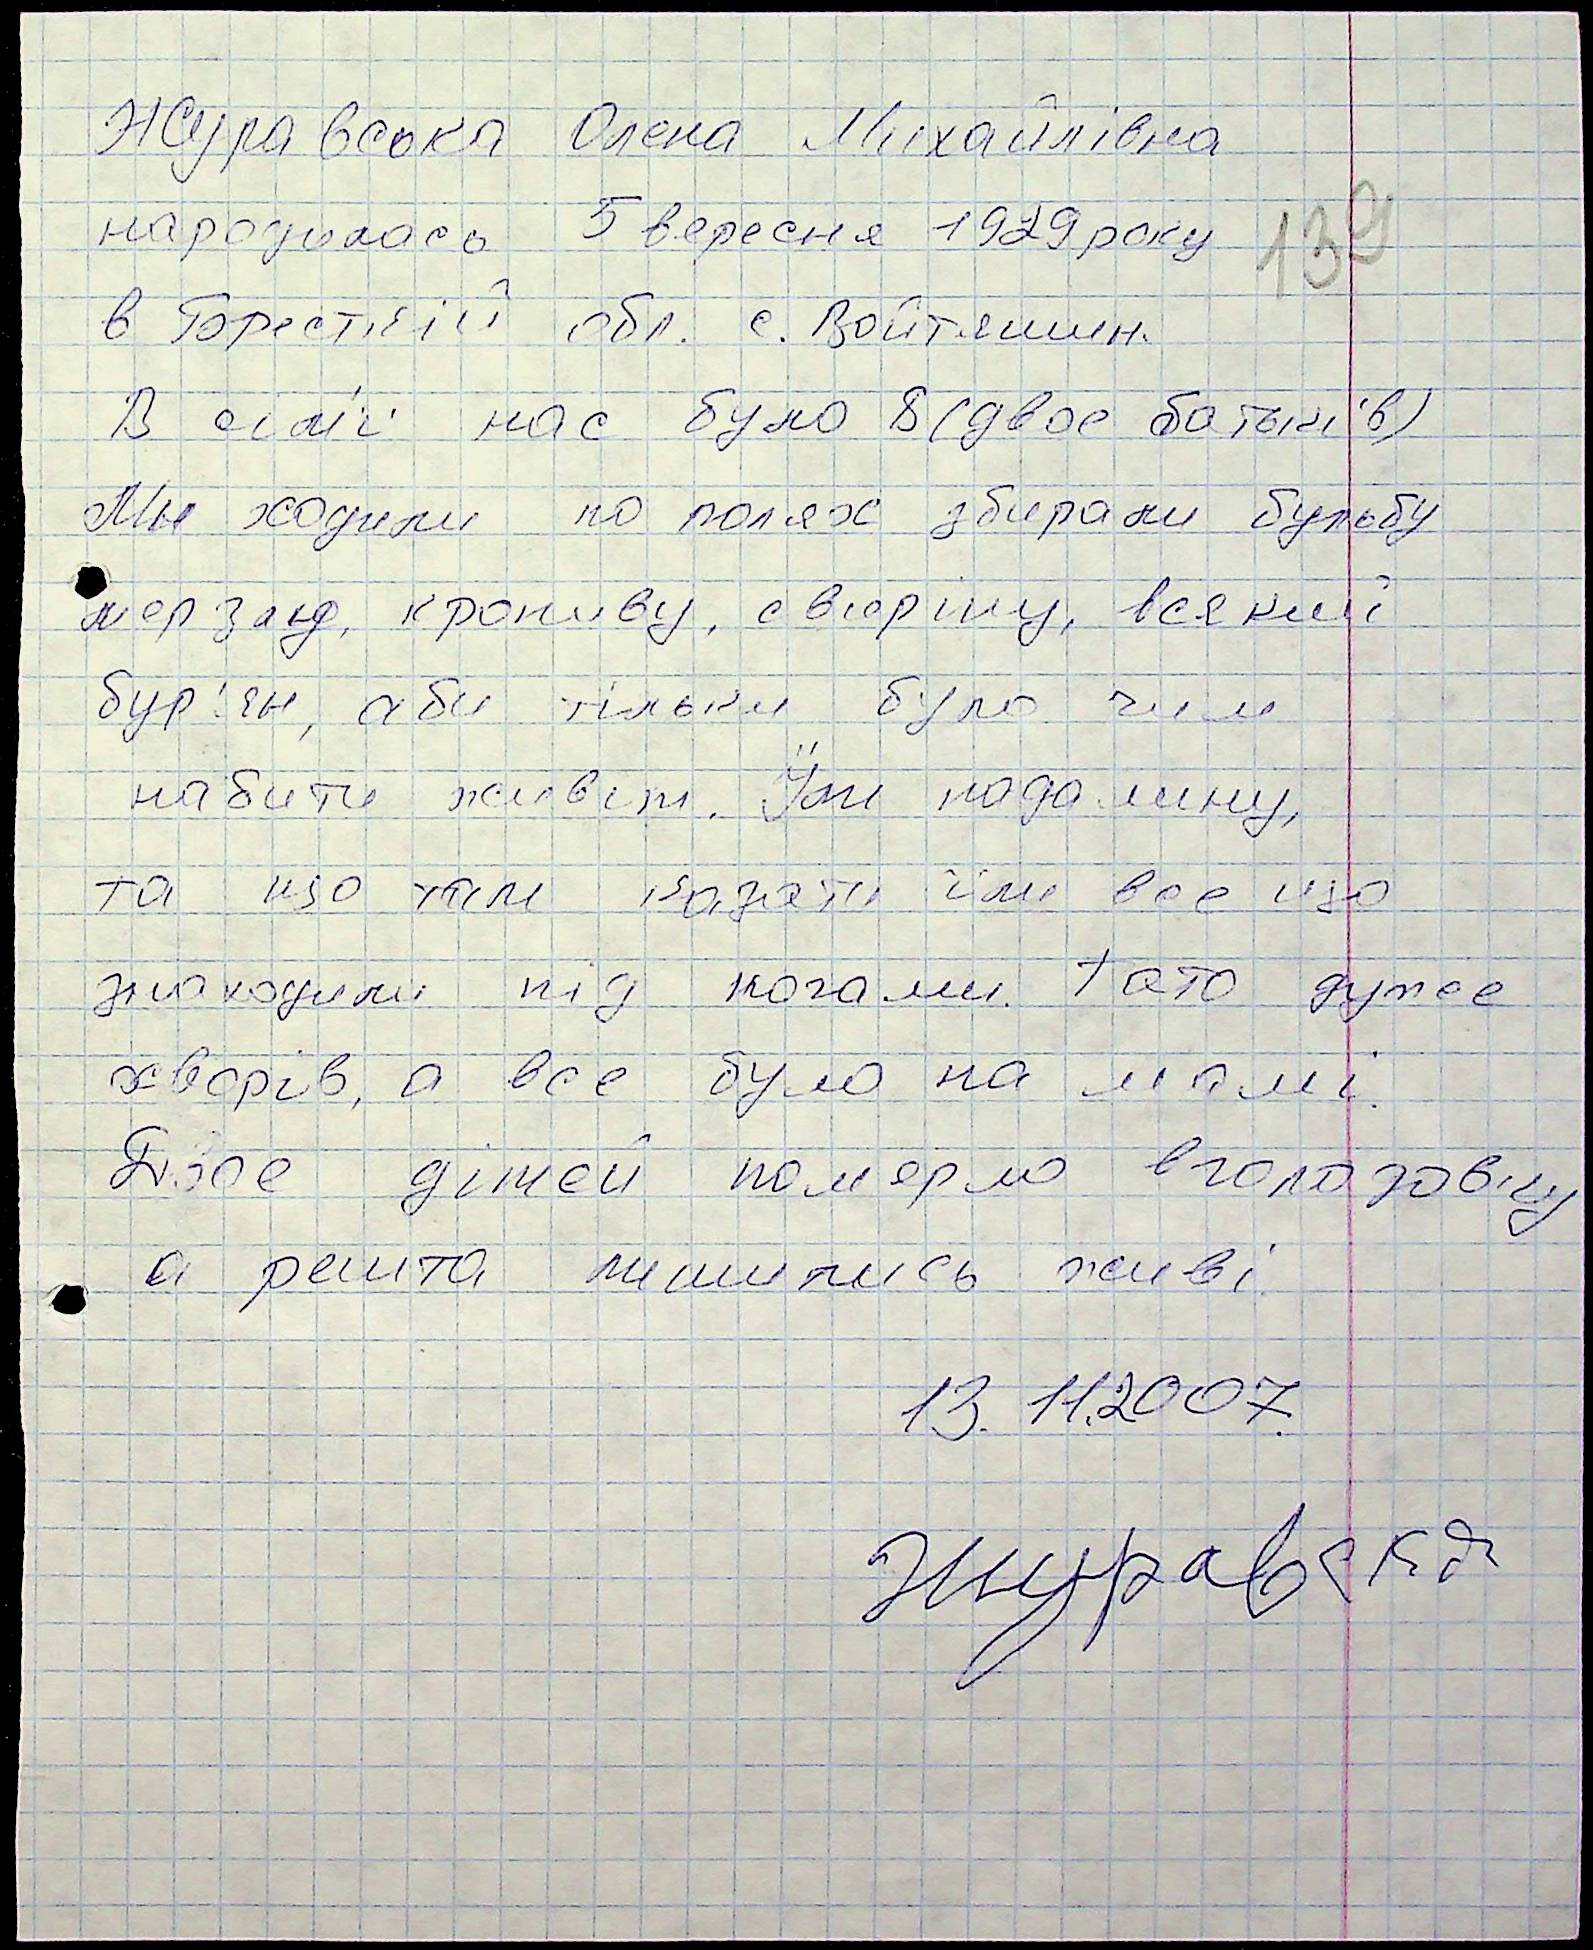 Журавська Олена Михайлівна
народилась 5 вересня 1929 року
139
в Брестській обл. с. Войтешин.
В сім'ї нас було 8 (двоє батьків)
Мы ходили по полях збирали бульбу
мерзлу, кропиву, свиріпу, всякий
бур'ян, аби тільки було чим
набити живіт. Їли падалину,
та що там казати їли все що
знаходили під ногами. Тато дуже
хворів, а все було на мамі.
Двоє дітей померло в голодовку
а решта лишились живі.
13. 11.2007.
Журавска